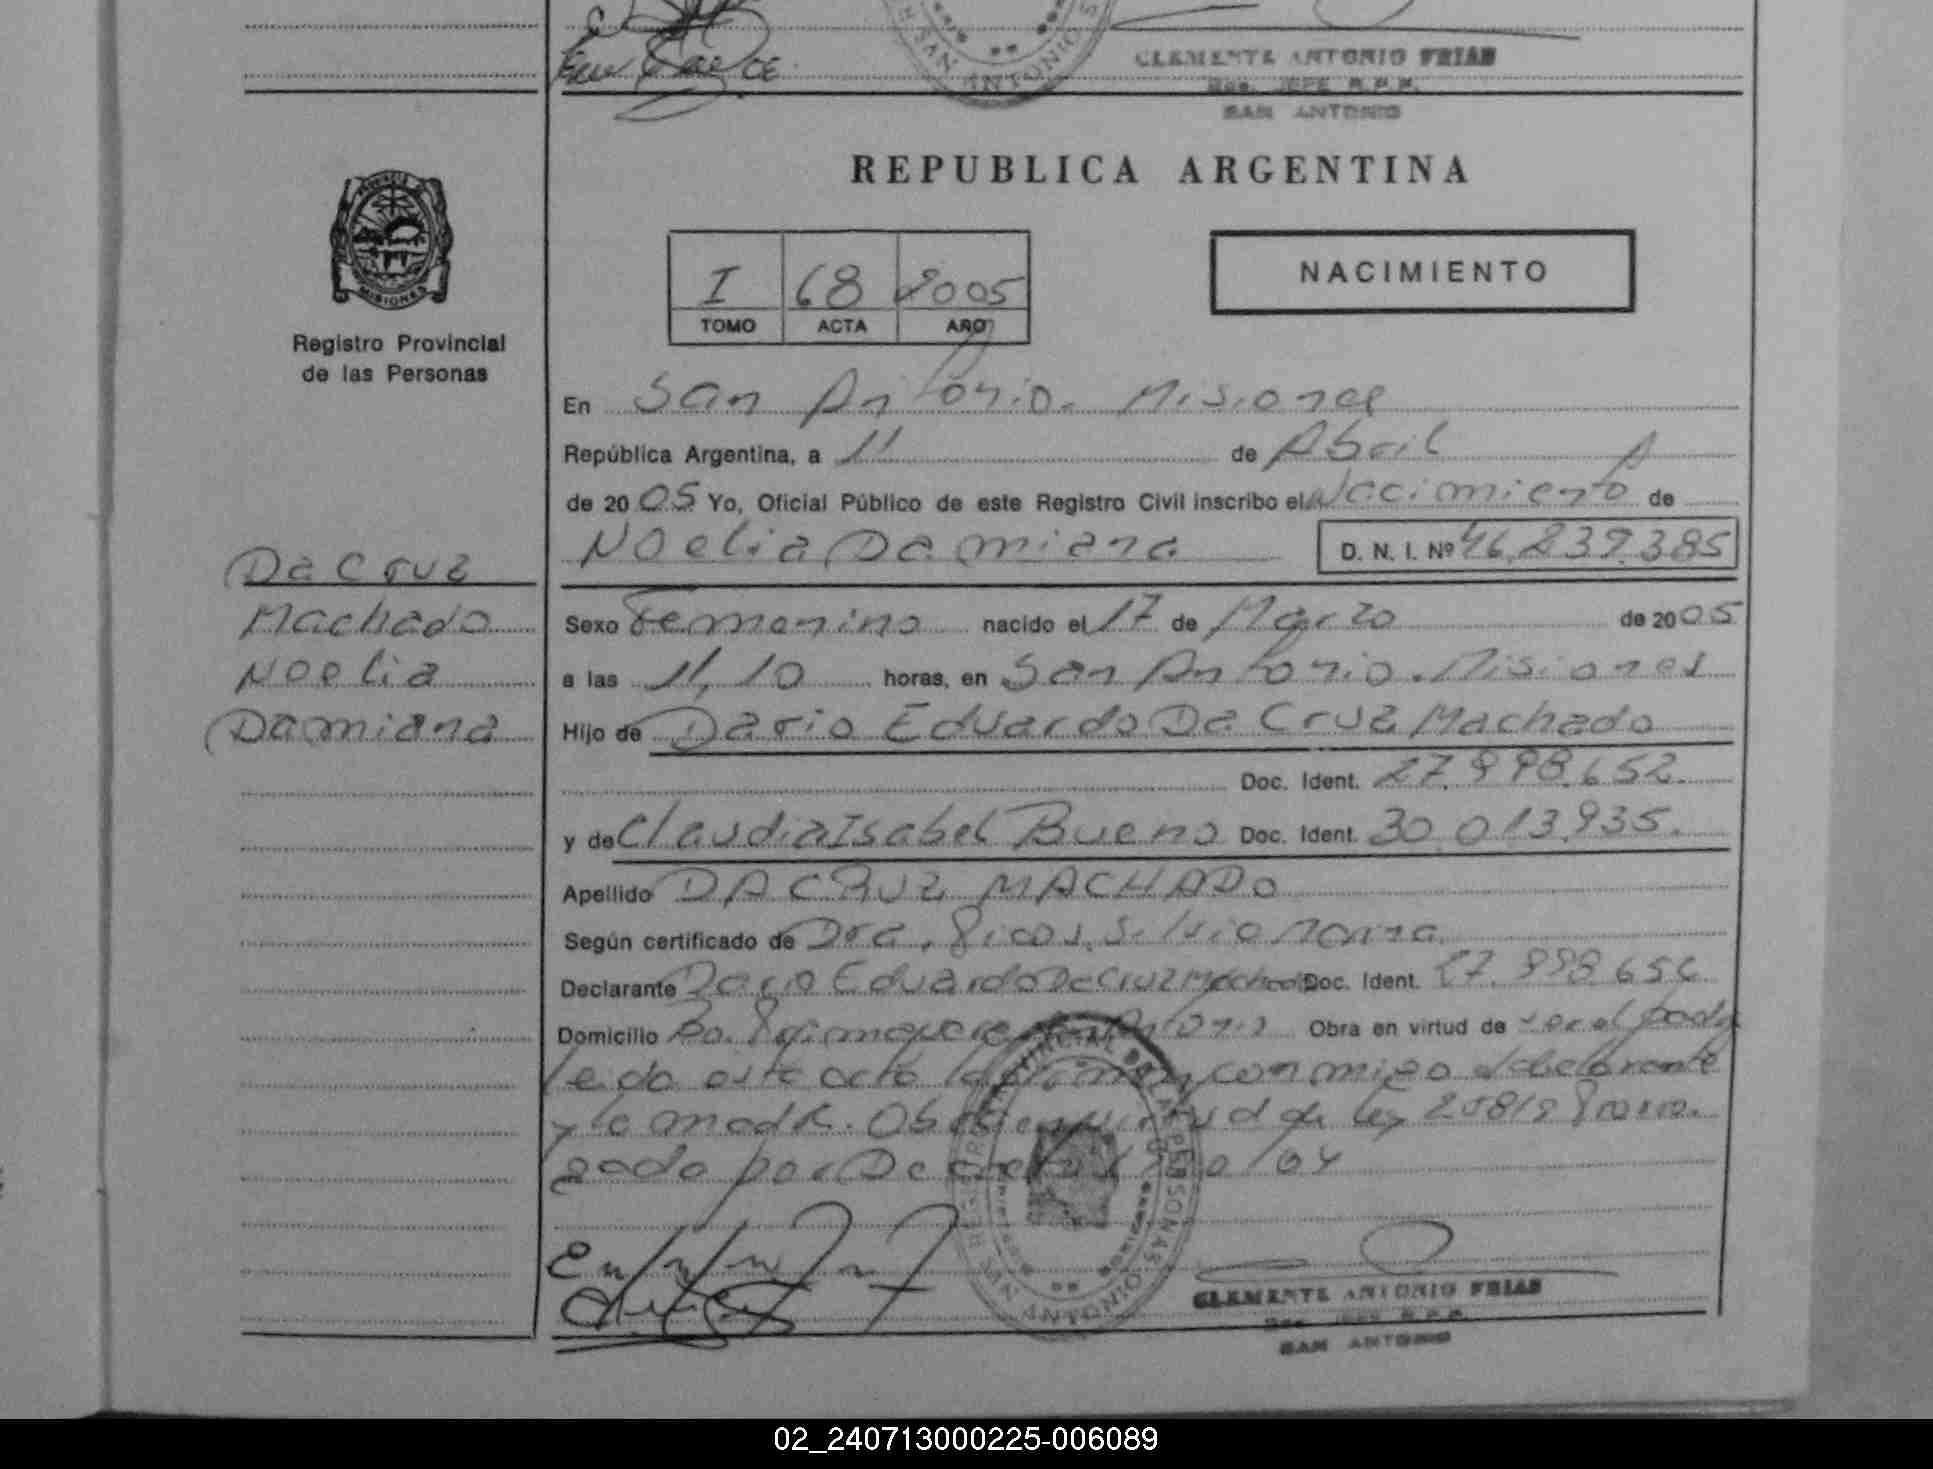 CLEMENTE ANTONIO FRIAS
JEFE R.P.P.
SAN ANTONIO
SAN ANTONIO
REPUBLICA ARGENTINA
PROVINCIA DE
MISIONES
Registro Provincial
de las Personas
I 68 2005
TOMO ACTA AÑO
NACIMIENTO
En San Antonio. Misiones
República Argentina, a 11 de Abril
de 2005 Yo, Oficial Público de este Registro Civil inscribo el Nacimiento de
Noelia Damiana D. N. I. Nº 46.239.385
Da Cruz
Machado
Noelia
Damiana
Sexo Femenino nacido el 17 de Marzo de 2005
a las 11,10 horas, en San Antonio. Misiones
Hijo de Dario Eduardo Da Cruz Machado
Doc. Ident. 27.998.652
y de Claudia Isabel Bueno Doc. Ident. 30.013.935.
Apellido DA CRUZ MACHADO
Según certificado de Dra.
Declarante Dario Eduardo Da Cruz Machado Doc. Ident. 27.998.652
Domicilio Bo. Primavera San Antonio Obra en virtud de ser el padre
leida este acta la firman conmigo el declarante
y la madre. Obra en virtud de ley 25819
gado por Decreto /04
REGISTRO PROVINCIAL DE LAS PERSONAS
SAN ANTONIO
CLEMENTE ANTONIO FRIAS
JEFE R.P.P.
SAN ANTONIO
02_240713000225-006089